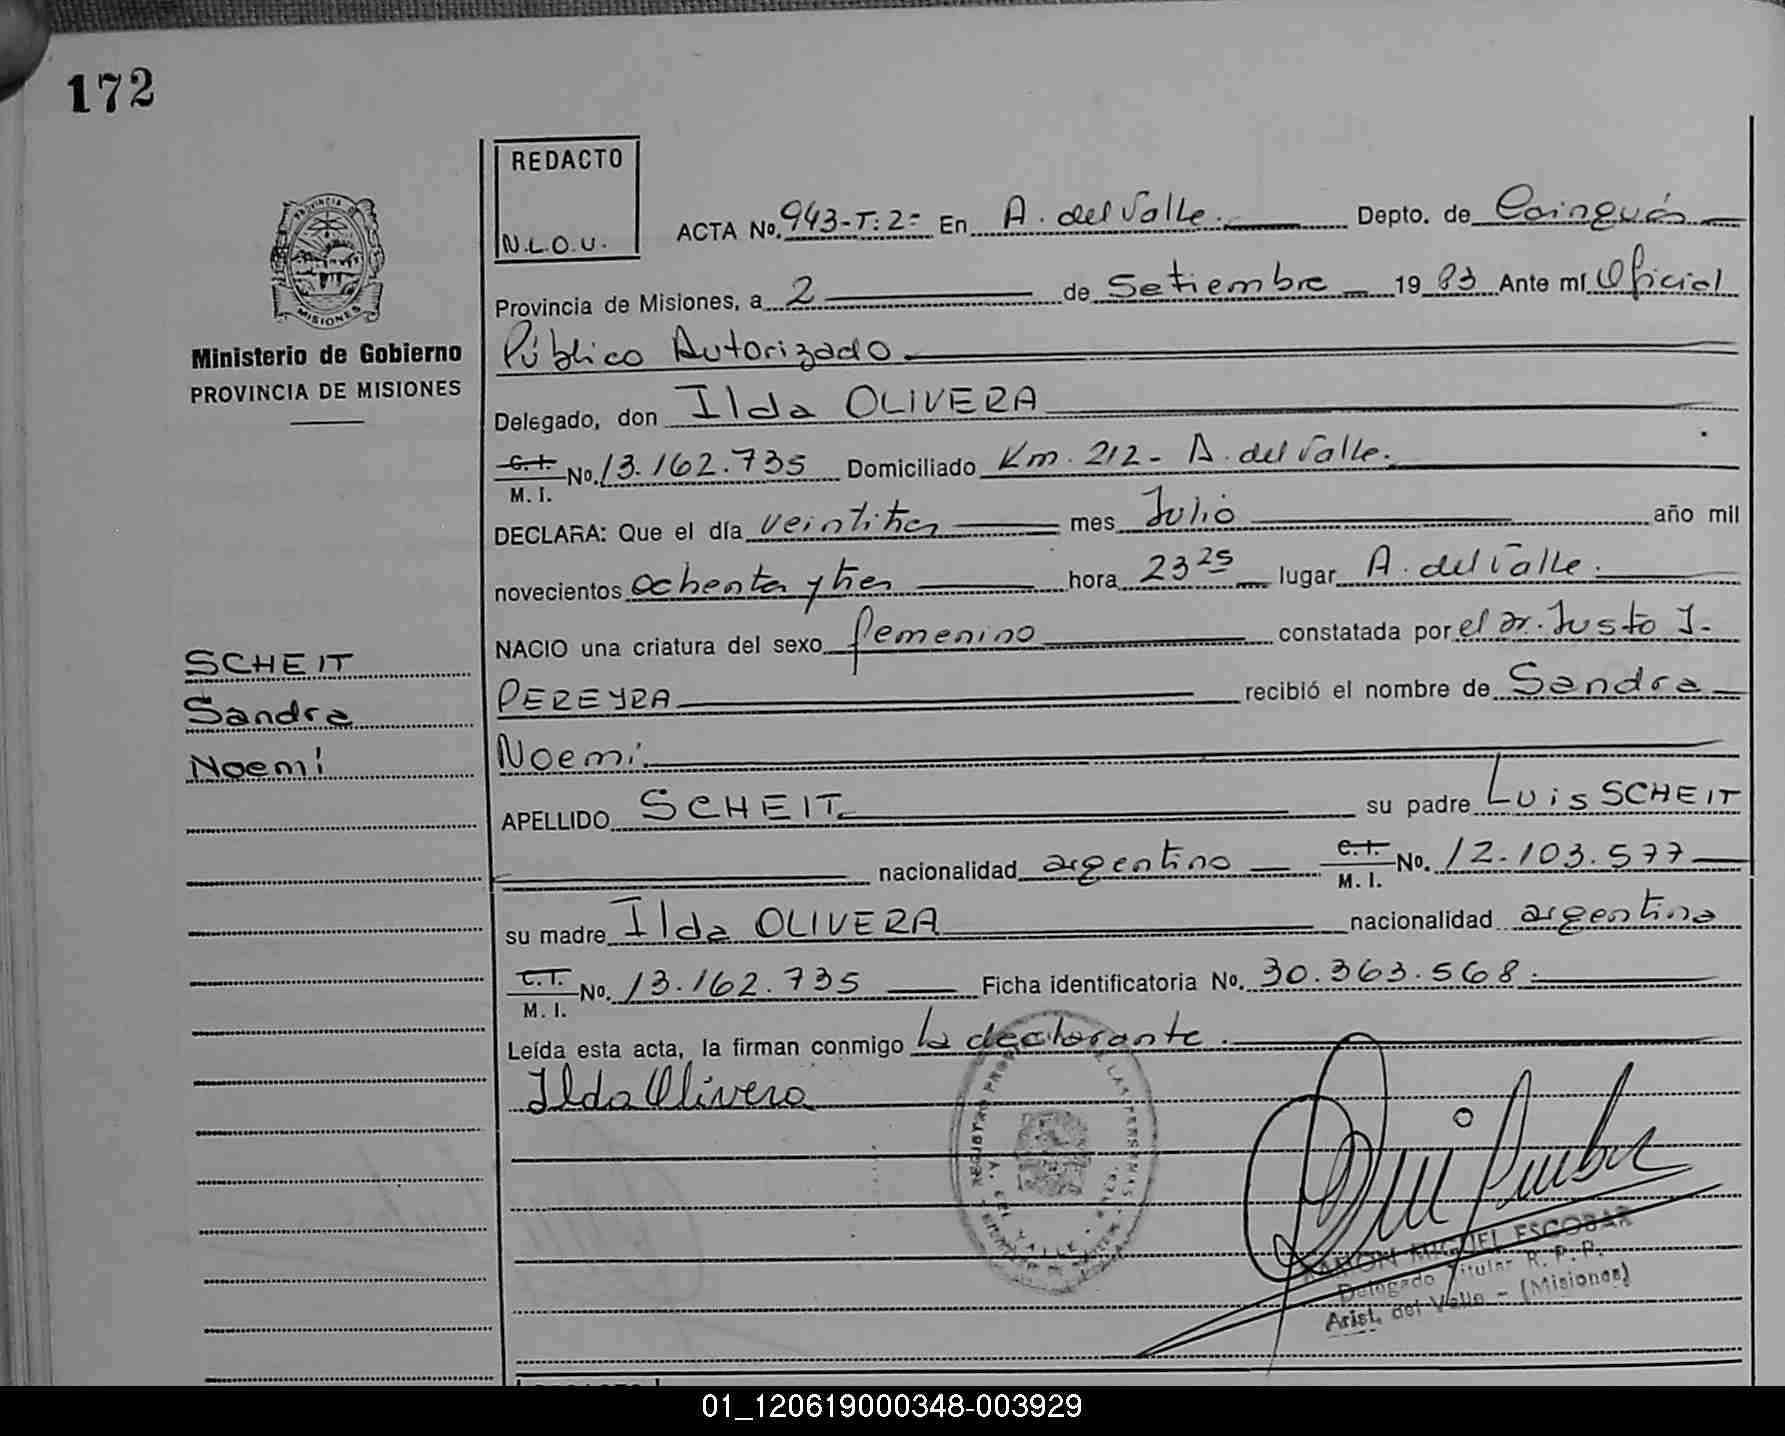 172
REDACTO
N.L.O.U.
ACTA No. 943-T:2= En A. del Valle. Depto. de Cainguás
Provincia de Misiones, a 2 de Setiembre 1983 Ante mí Oficial
Público Autorizado
Delegado, don Ilda OLIVERA
C.I. M. I. No. 13.162.735 Domiciliado Km. 212 - A. del Valle.
DECLARA: Que el día veintitres mes Julio año mil
novecientos ochenta y tres hora 23 25 lugar A. del Valle.
NACIO una criatura del sexo femenino constatada por el Dr. Justo J.
PEREYRA recibió el nombre de Sandra
Noemí.
APELLIDO SCHEIT su padre Luis SCHEIT
nacionalidad argentino C.I. M. I. No. 12.103.577
su madre Ilda OLIVERA nacionalidad argentina
C.I. M. I. No. 13.162.735 Ficha identificatoria No. 30.363.568.
Leída esta acta, la firman conmigo la declarante.
Ilda Olivera
PROVINCIA DE
MISIONES
Ministerio de Gobierno
PROVINCIA DE MISIONES
SCHEIT
Sandra
Noemí
REGISTRO LAS PERSONAS
A. DEL VALLE
RAMON MIGUEL ESCOBAR
Delegado Titular R. P. P.
Arist. del Valle - (Misiones)
01_120619000348-003929